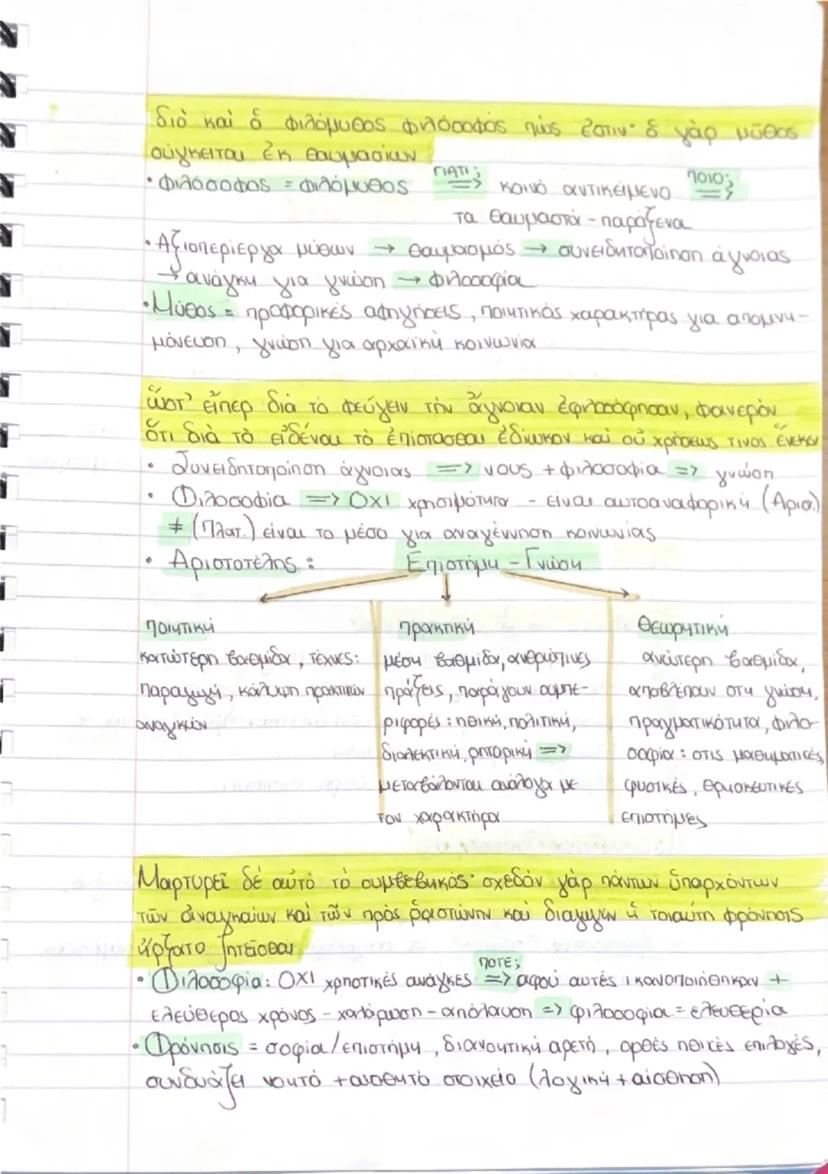 διὸ καὶ ὁ φιλόμυθος φιλόσοφός πώς ἐστιν· ὁ γὰρ μῦθος
σύγκειται ἐκ θαυμασίων
• Φιλόσοφος = φιλόμυθος ΓΙΑΤΙ; => κοινό αντικείμενο ΠΟΙΟ; =>
τα θαυμαστά - παράξενα
• Αξιοπερίεργα μύθων → θαυμασμός → συνειδητοποίηση άγνοιας
→ ανάγκη για γνώση → φιλοσοφία
• Μύθος = προφορικές αφηγήσεις, ποιητικός χαρακτήρας για απομνη-
μόνευση, γνώση για αρχαϊκή κοινωνία
ὥστ' εἴπερ διὰ τὸ φεύγειν τὴν ἄγνοιαν ἐφιλοσόφησαν, φανερὸν
ὅτι διὰ τὸ εἰδέναι τὸ ἐπίστασθαι ἐδίωκον καὶ οὐ χρήσεώς τινος ἕνεκεν
• Συνειδητοποίηση άγνοιας => νους + φιλοσοφία => γνώση
• Φιλοσοφία => ΟΧΙ χρησιμότητα - είναι αυτοαναφορική (Αρισ.)
≠ (Πλατ.) είναι το μέσο για αναγέννηση κοινωνίας
• Αριστοτέλης: Επιστήμη - Γνώση
ποιητική
κατώτερη βαθμίδα, τέχνες:
παραγωγή, κάλυψη πρακτικών
αναγκών
πρακτική
μέση βαθμίδα, ανθρώπινες
πράξεις, παράγουν συμπε-
ριφορές: ηθική, πολιτική,
διαλεκτική, ρητορική =>
μεταβάλονται ανάλογα με
τον χαρακτήρα
θεωρητική
ανώτερη βαθμίδα,
αποβλέπουν στη γνώση,
πραγματικότητα, φιλο-
σοφία: στις μαθηματικές,
φυσικές, θρησκευτικές
επιστήμες
Μαρτυρεῖ δέ αὐτὸ τό συμβεβηκός· σχεδόν γὰρ πάντων ὑπαρχόντων
τῶν ἀναγκαίων καὶ τῶν πρὸς ῥᾳστώνην καὶ διαγωγήν ἡ τοιαύτη φρόνησις
ἤρξατο ζητεῖσθαι
• Φιλοσοφία: ΟΧΙ χρηστικές ανάγκες ΠΟΤΕ; => αφού αυτές ικανοποιήθηκαν +
ελεύθερος χρόνος - χαλάρωση - απόλαυση => φιλοσοφία = ελευθερία
• Φρόνησις = σοφία/επιστήμη, διανοητική αρετή, ορθές ηθικές επιλογές,
συνδυάζει νοητό + αισθητό στοιχείο (λογική + αίσθηση)